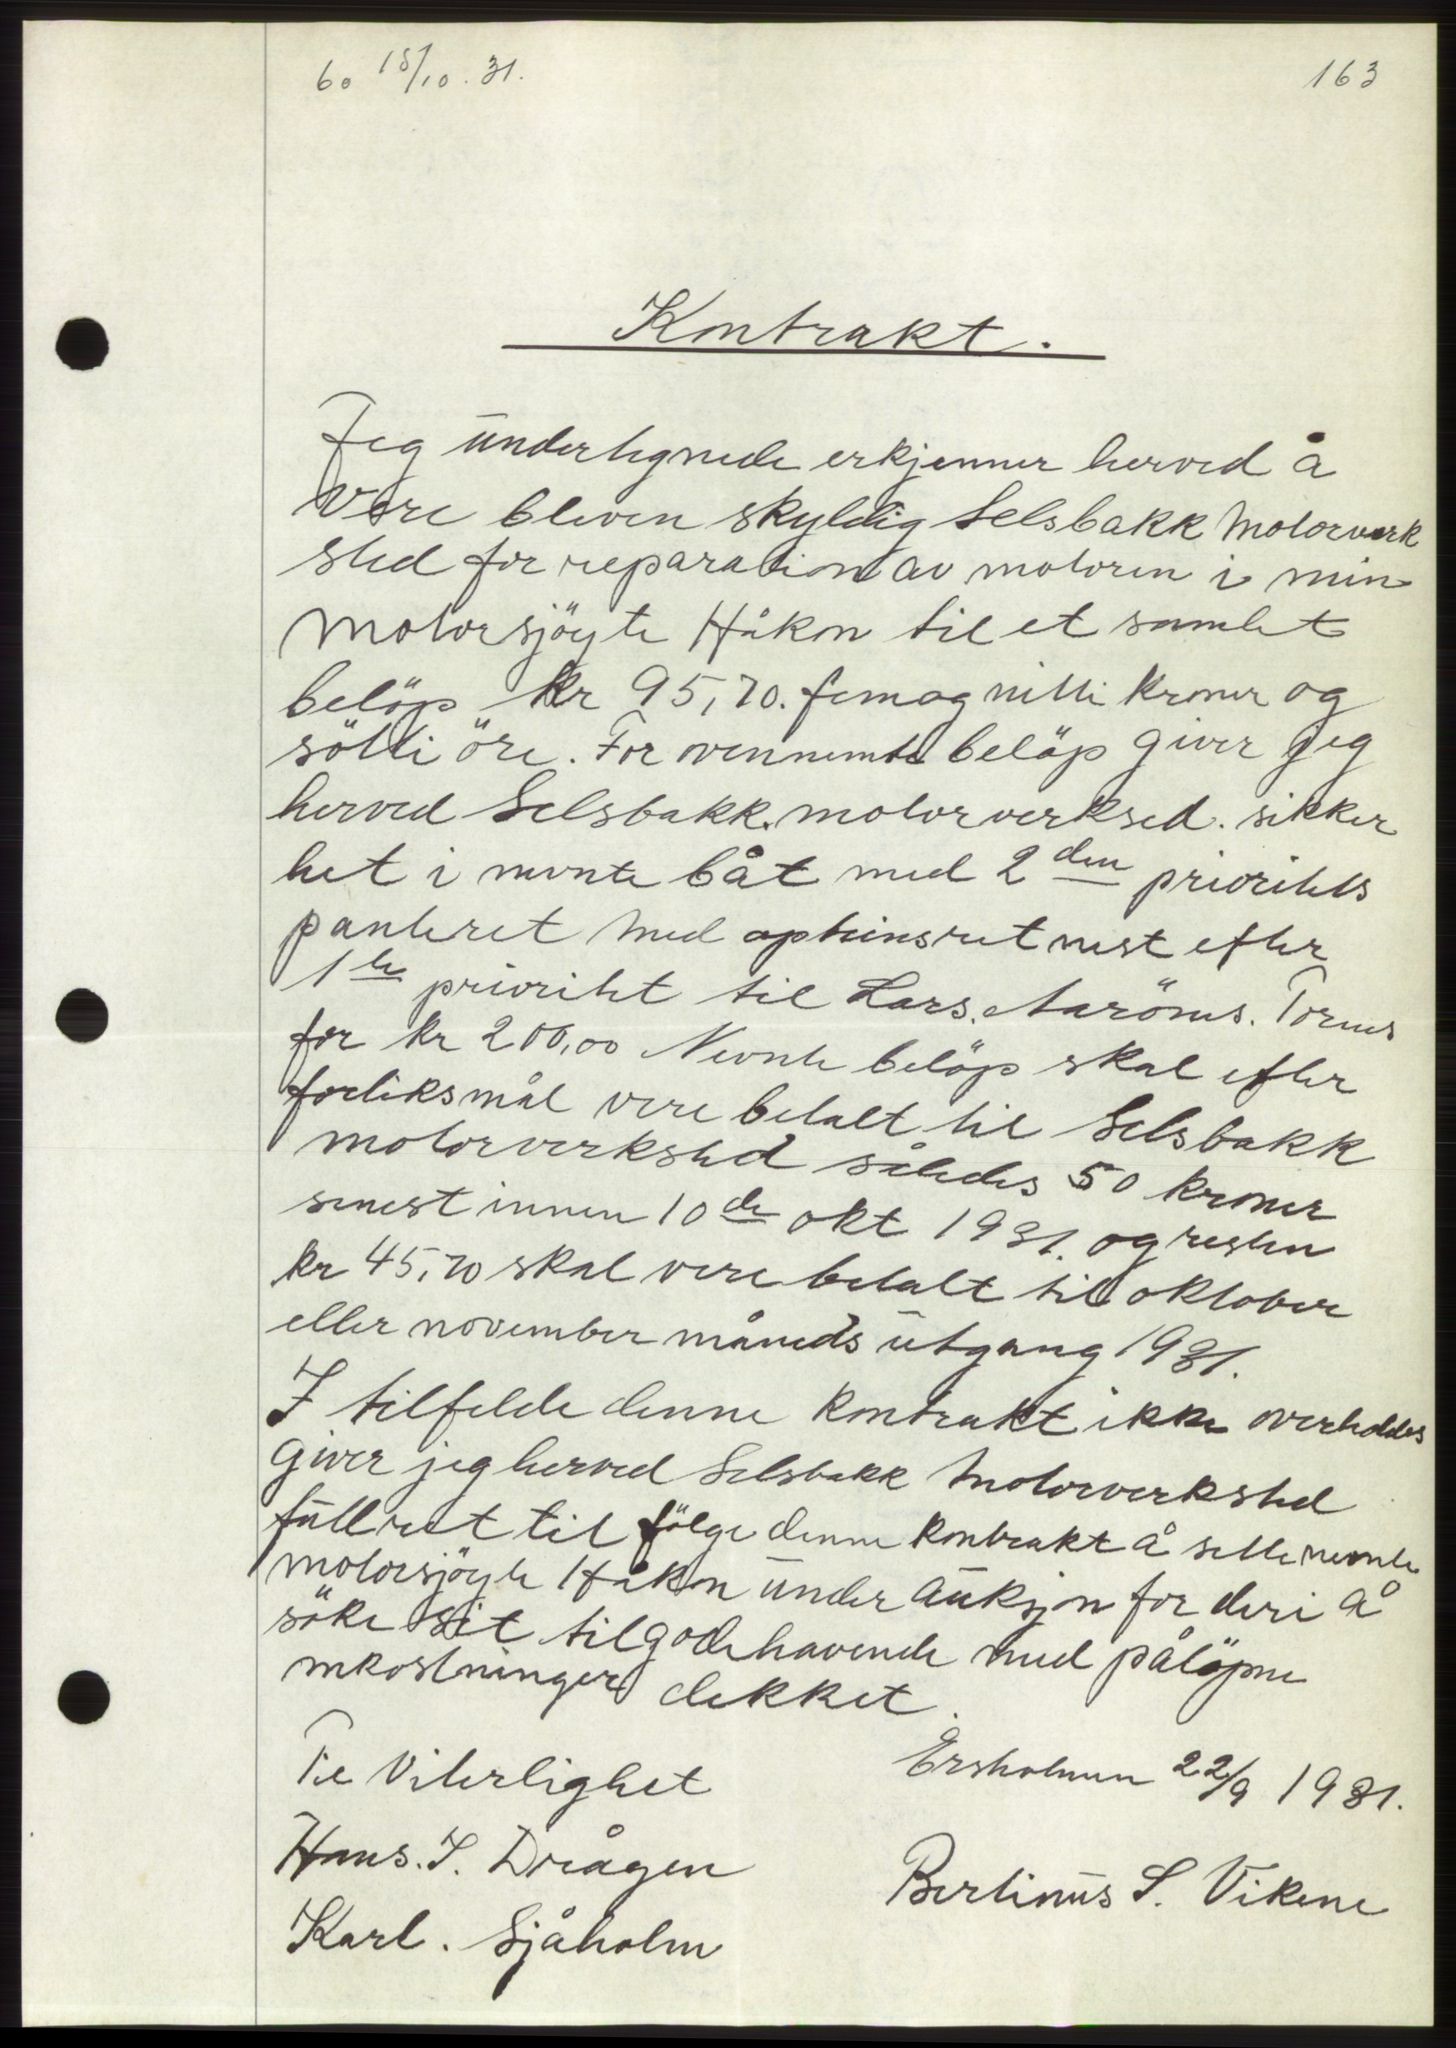 60 15/10. 31.
163
Kontrakt.
Jeg undertegnede erkjenner herved å
vere bleven skyldig Selsbakk Motorverk
sted for reparation av motoren i min
Motorsjöyte Håkon til et samlet
belöp kr 95,70. femog nitti kroner og
sötti öre. For ovennemte belöp giver jeg
herved Selsbakk. motorverksed. sikker
het i nevnte båt med 2den prioritets
panteret med opteinsret nest efter
1te prioritet til Lars. Aarönes. Tornes
for kr 200,00 Nevnte belöp skal efter
forliksmål vere betalt til Selsbakk
motorverksted således 50 kroner
senest innen 10de okt 1931. og resten
kr 45,70 skal vere betalt til oktober
eller november måneds utgang 1931.
I tilfelde denne kontrakt ikke overholdes
giver jeg herved Selsbakk Motorverksted
full ret til fölge denne kontrakt å sette nevnte
motorsjöyte Håkon under auksjon for deri å
söke sit tilgodehavende med pålöpne
mkostninger dekket.
Til Viterlighet
Ersholmen 22/9 1931.
Hans. I. Drågen
Bertinus S. Vikene
Karl. Sjåholm